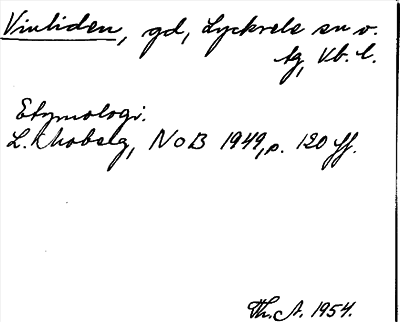 Vinliden, gd, Lycksele sn o.
tg, Vb. l.
Etymologi.
L. Moberg, NoB 1949, s. 120 ff.
Th. A. 1954.